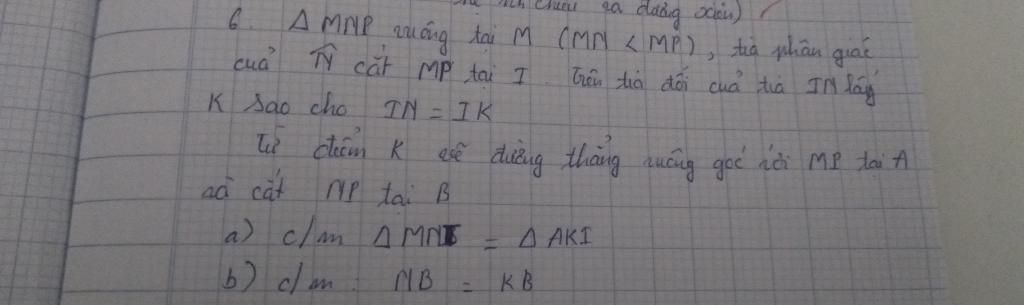 ra đường xiên)
6. Δ MNP vuông tại M (MN < MP), tia phân giác
của N̂ cắt MP tại I. Trên tia đối của tia IN lấy
K sao cho IN = IK
Từ điểm K vẽ đường thẳng vuông góc với MP tại A
và cắt NP tại B
a) c/m Δ MNI = Δ AKI
b) c/m: NB = KB